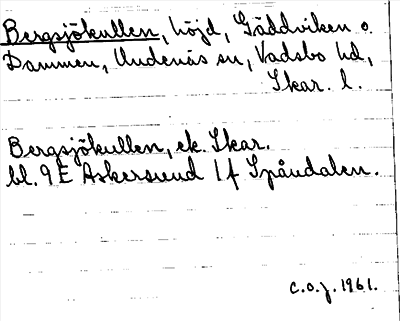 Bergsjökullen, höjd, Gäddviken o.
Dammen, Undenäs sn, Vadsbo hd,
Skar. l.
Bergsjökullen, ek. Skar.
bl. 9 E Askersund 1 f Spåndalen.
c.o.j. 1961.